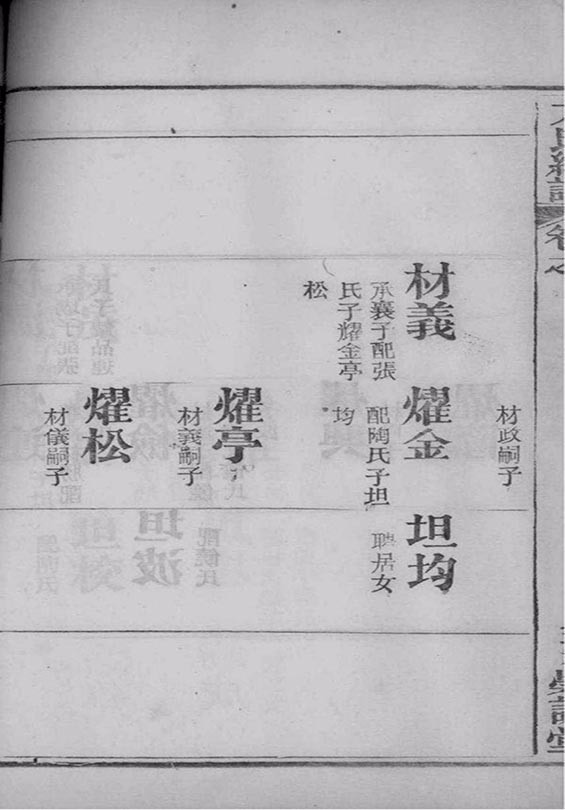 氏統譜
卷之
材義
承襄子配張
氏子耀金亭
松
材政嗣子
耀金
配陶氏子坦
均
耀亭
材義嗣子
耀松
材儀嗣子
坦均
聘居女